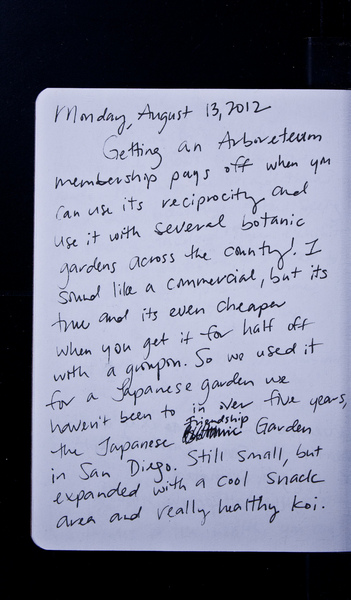 Monday, August 13, 2012
Getting an Arboretum
membership pays off when you
can use its reciprocity and
use it with several botanic
gardens across the country! I
sound like a commercial, but its
true and its even cheaper
when you get it for half off
with a groupon. So we used it
for a Japanese garden we
haven't been to in over five years,
the Japanese Friendship Garden
in San Diego. Still small, but
expanded with a cool snack
area and really healthy koi.